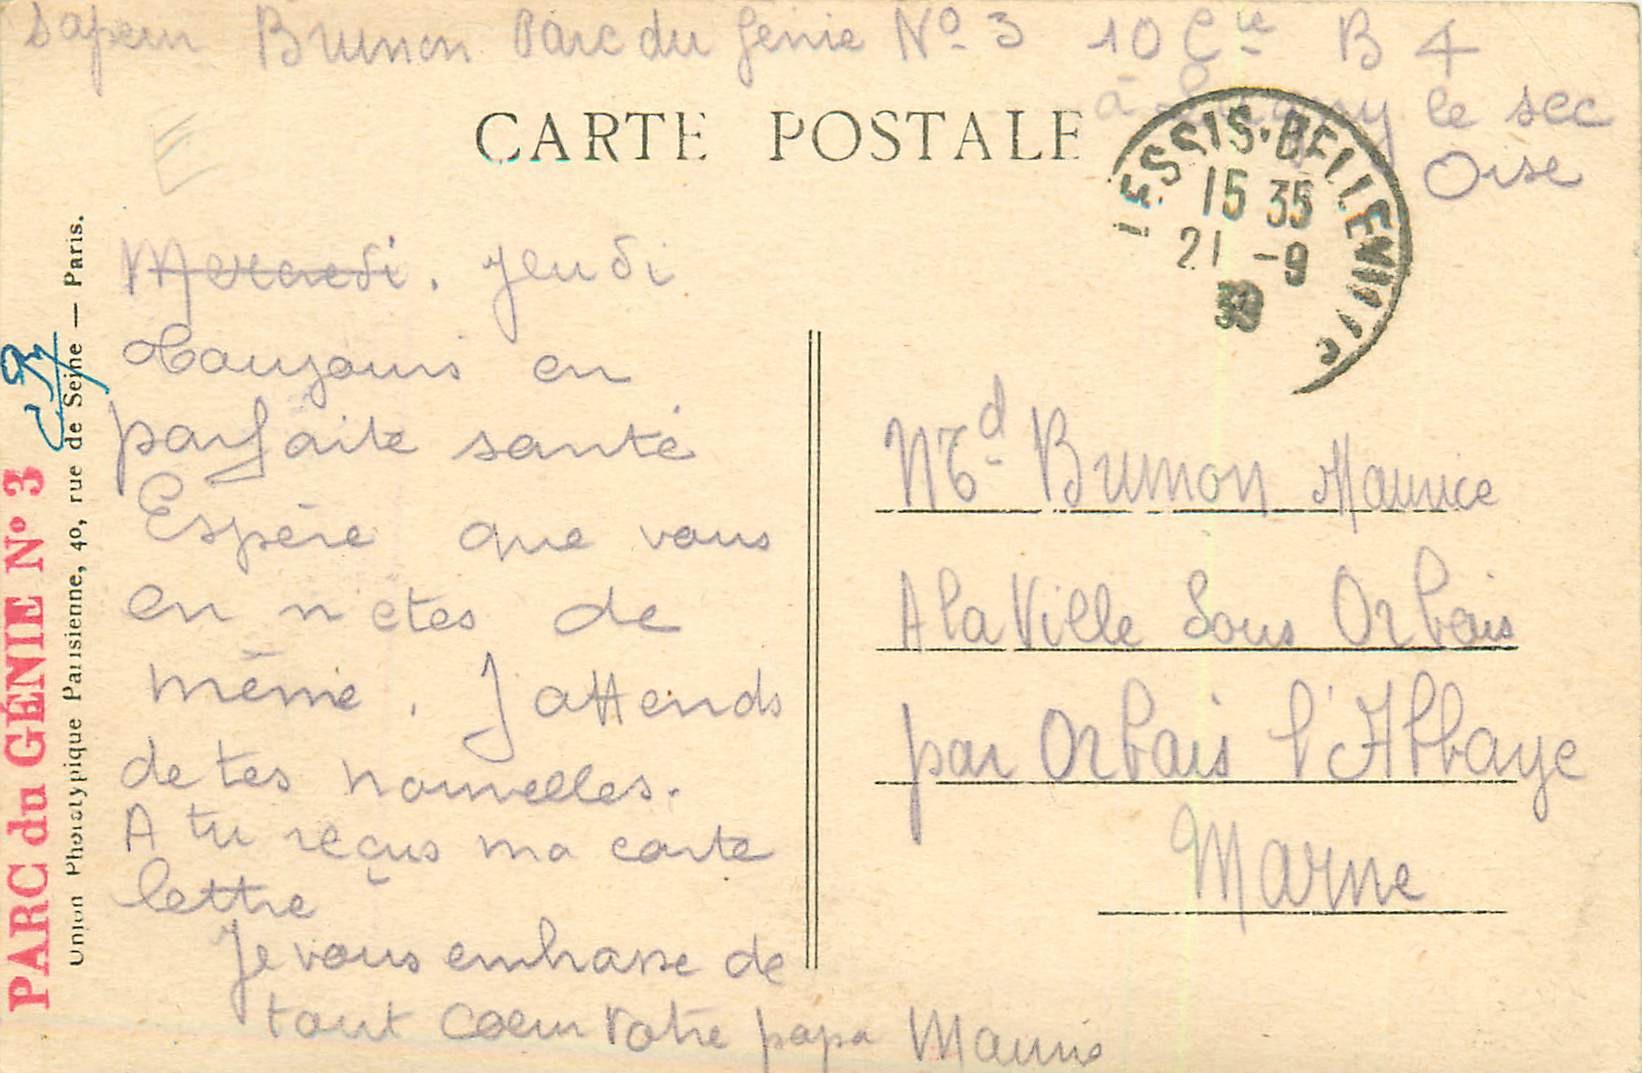 Sapeur Brunon Parc du Génie No 3 10 Cie B 4
à Lagny le sec
Oise
CARTE POSTALE
LESSIS-BELLEVILLE
15 35
21 -9
39
PARC du GÉNIE N° 3
Union Phototypique Parisienne, 40, rue de Seine — Paris.
Mercredi. jeudi
Toujours en
parfaite santé
Espère que vous
en n'êtes de
même. J'attends
de tes nouvelles.
A tu reçus ma carte
lettre
Je vous embrasse de
tout coeur votre papa Maurice
Brunon Maurice
A la Ville Sous Orbais
par Orbais l'Abbaye
Marne